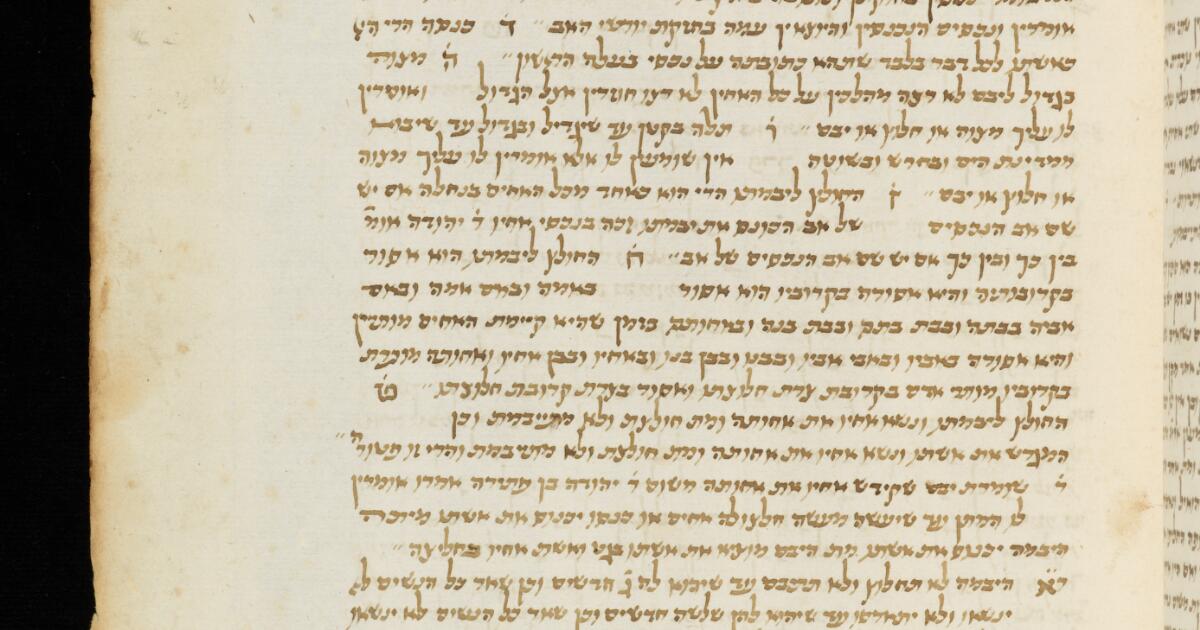 אומרין ונכסים הנכנסין והיוצאין עמה בחזקת יורשי האב ׃ ד כנסה הרי היא
כאשתו לכל דבר בלבד שתהא כתובתה על נכסי בעלה הראשון ׃ ה מצוה
בגדול לייבם לא רצה מהלכין על כל האחין לא רצו חוזרין אצל הגדול ואומרין
לו עליך מצוה או חלוץ או יבם ׃ ו תלה בקטן עד שיגדיל ובגדול עד שיבוא
ממדינת הים ובחרש ובשוטה אין שומעין לו אלא אומרין לו עליך מצוה
או חלוץ או יבם ׃ ז החולץ ליבמתו הרי הוא כאחד מכל האחים בנחלה אם יש
שם אב הנכסים של אב הכונס את יבמתו זכה בנכסי אחיו ר׳ יהודה אומ׳
בין כך ובין כך אם יש שם אב הנכסים של אב ׃ ח החולץ ליבמתו הוא אסור
בקרובותיה והיא אסורה בקרוביו הוא אסור באמה ובאם אמה ובאם
אביה בבתה ובבת בתה ובבת בנה ובאחותה בזמן שהיא קיימת האחים מותרין
והיא אסורה באביו ובאבי אביו ובבנו ובבן בנו ובאחיו ובבן אחיו
בקרוביו מותר אדם בקרובת צרת חלוצתו ואסור בצרת קרובת חלוצתו ׃ ט
החולץ ליבמתו ונשא אחיו את אחותה ומת חולצת ולא מתייבמת וכן
המגרש את אשתו ונשא אחיו את אחותה ומת חולצת ולא מתיבמת והרי זו פטורה ׃
י שומרת יבם שקידש אחיו את אחותה משום ר׳ יהודה בן בתירה אמרו אומרין
לו המתן עד שיעשה מעשה חלצו לה אחים או כנסו יכנוס את אשתו מיתה
היבמה יכנוס את אשתו מת היבם מוציא את אשתו בגט ואשת אחיו בחליצה ׃
יא היבמה לא תחלוץ ולא תתיבם עד שיהוא לה ג׳ חדשים וכן שאר כל הנשים לא
ינשאו ולא יתארסו עד שיהוא להן שלשה חדשים וכן שאר כל הנשים לא ינשאו